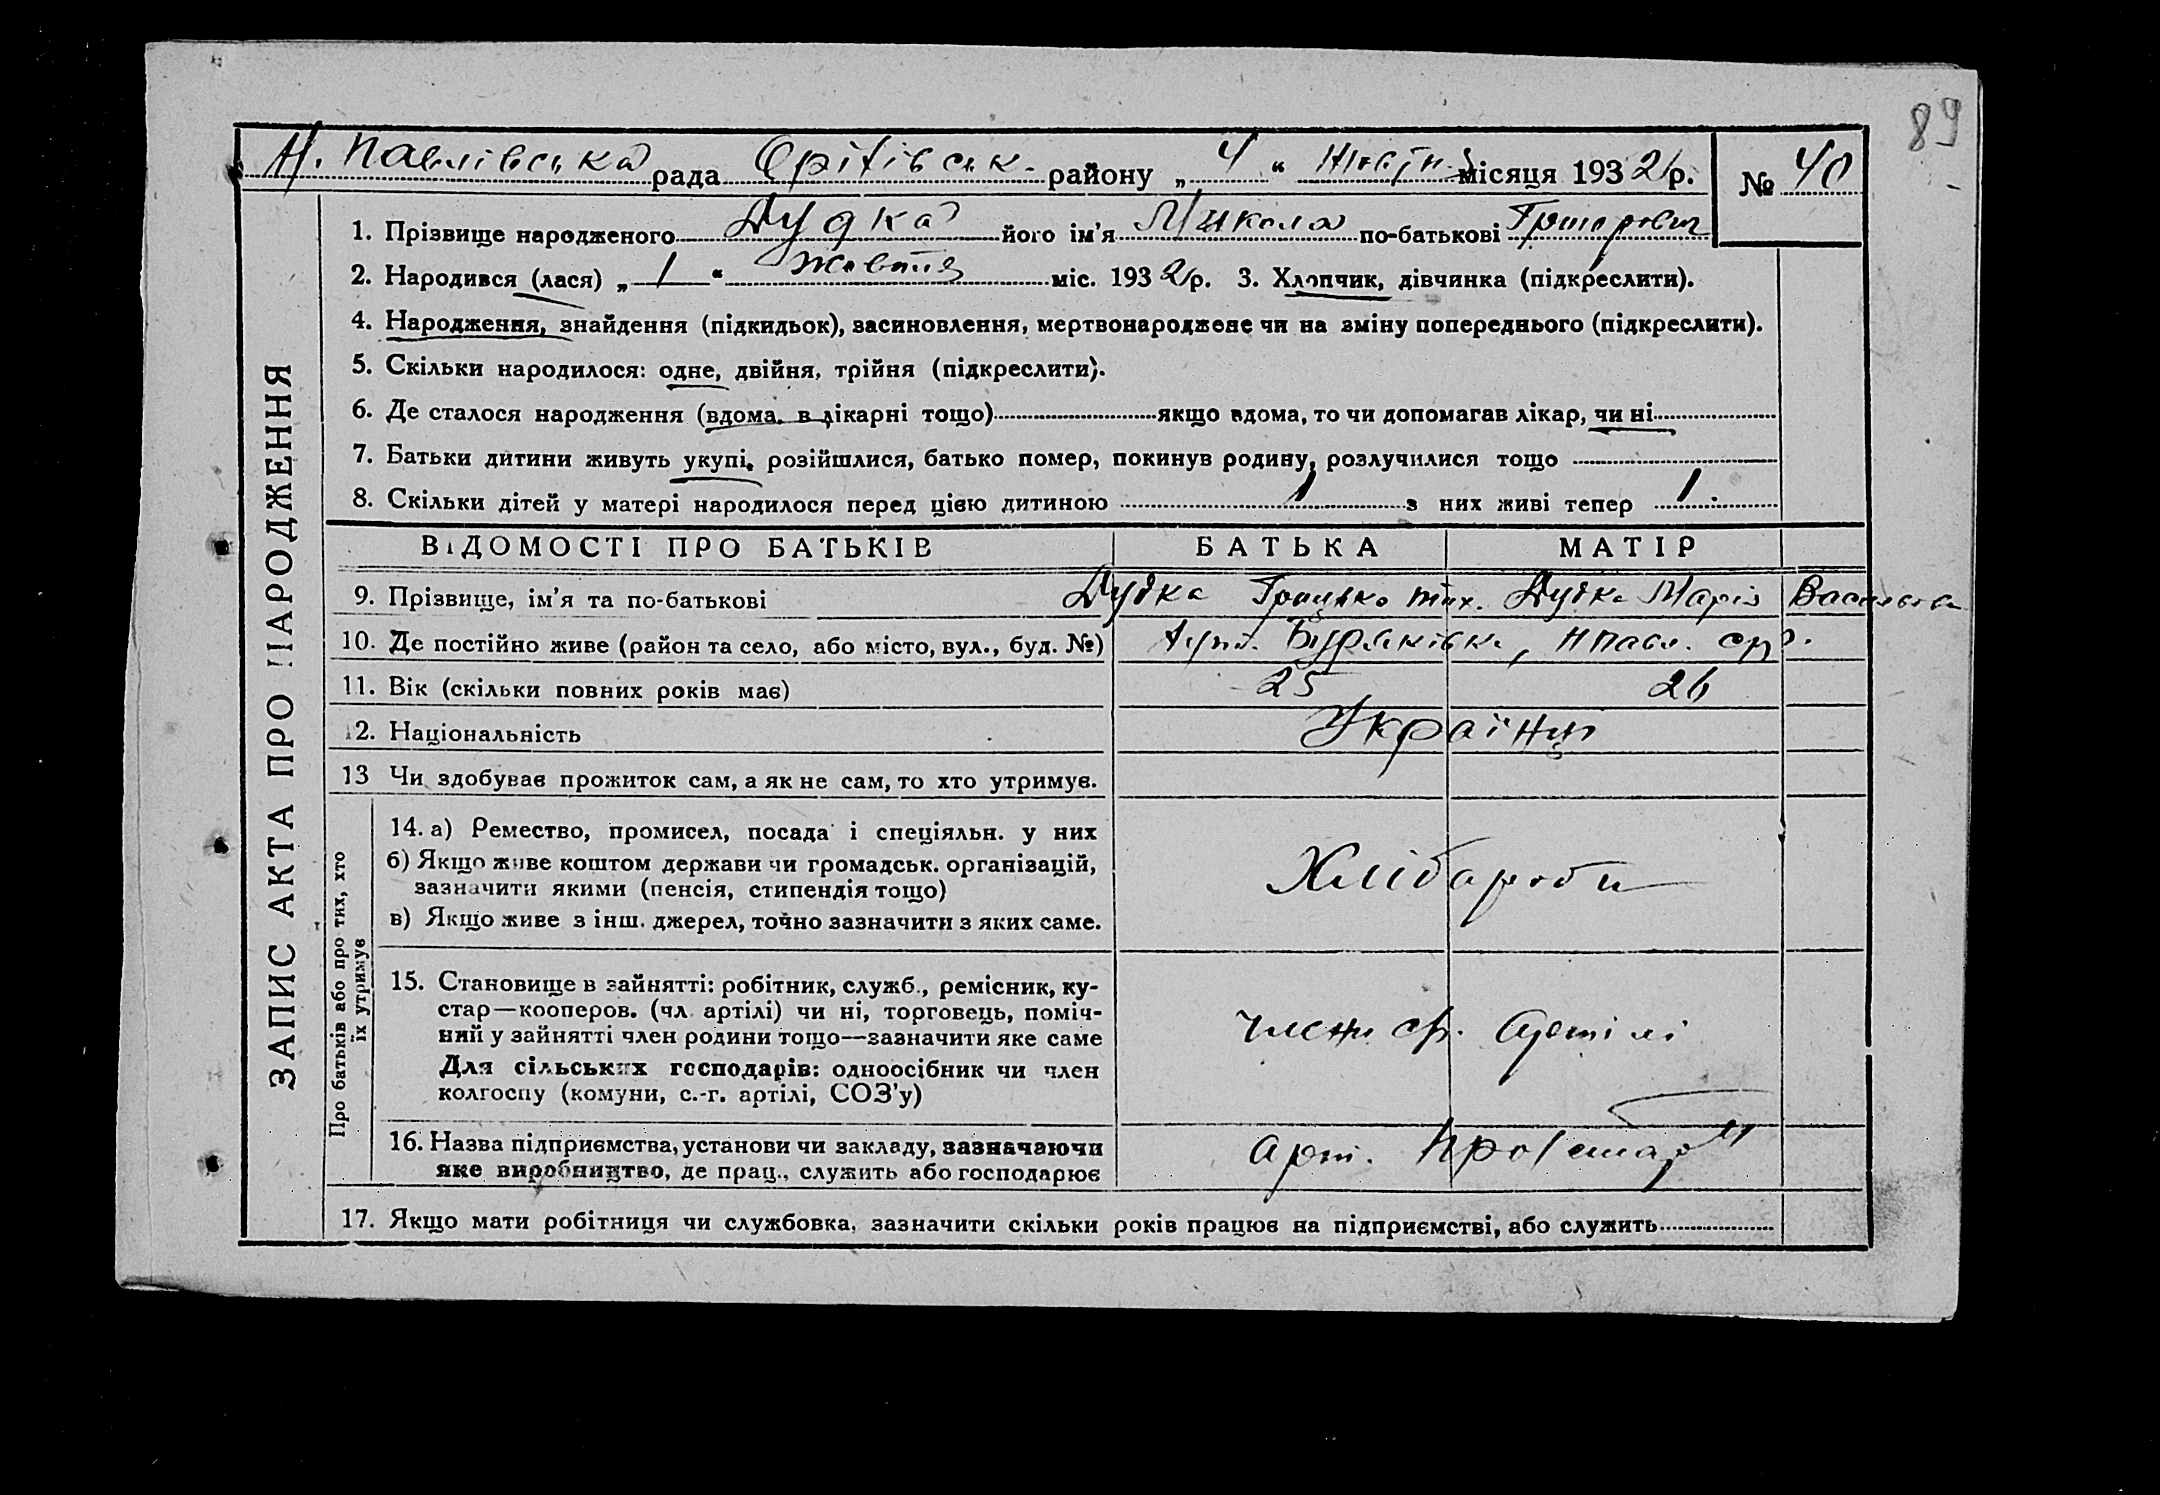 89
Н. Павлівська рада Оріхівськ. району „ 4 “ місяця 1932 р. № 40
ЗАПИС АКТА ПРО НАРОДЖЕННЯ
1. Прізвище народженого Дудка його ім'я Микола по-батькові Григорович
2. Народився (лася) „ 1 “ жовтня міс. 1932 р. 3. Хлопчик, дівчинка (підкреслити).
4. Народження, знайдення (підкидьок), засиновлення, мертвонароджене чи на зміну попереднього (підкреслити).
5. Скільки народилося: одне, двійня, трійня (підкреслити).
6. Де сталося народження (вдома, в лікарні тощо) якщо вдома, то чи допомагав лікар, чи ні
7. Батьки дитини живуть укупі, розійшлися, батько помер, покинув родину, розлучилися тощо
8. Скільки дітей у матері народилося перед цією дитиною 1 з них живі тепер 1
ВІДОМОСТІ ПРО БАТЬКІВ БАТЬКА МАТІР
9. Прізвище, ім'я та по-батькові Дудка Грицько Тих. Дудка Марія Васильевна
10. Де постійно живе (район та село, або місто, вул., буд. №) Буряківка, Н Павл. с/р.
11. Вік (скільки повних років має) 25 26
12. Національність Українці
13 Чи здобував прожиток сам, а як не сам, то хто утримув.
Про батьків або про тих, хто
їх утримує
14. а) Ремество, промисел, посада і спеціяльн. у них
б) Якщо живе коштом держави чи громадськ. організацій,
зазначити якими (пенсія, стипендія тощо)
в) Якщо живе з інш. джерел, точно зазначити з яких саме.
Хлібароби
15. Становище в зайнятті: робітник, служб., ремісник, ку-
стар—кооперов. (чл. артілі) чи ні, торговець, поміч-
ний у зайнятті член родини тощо—зазначити яке саме
Для сільських господарів: одноосібник чи член
колгоспу (комуни, с.-г. артілі, СОЗ'у)
члени с/г. Артілі
16. Назва підприємства, установи чи закладу, зазначаючи
яке виробництво, де прац., служить або господарює
арт. Пролетар"
17. Якщо мати робітниця чи службовка, зазначити скільки років працює на підприємстві, або служить